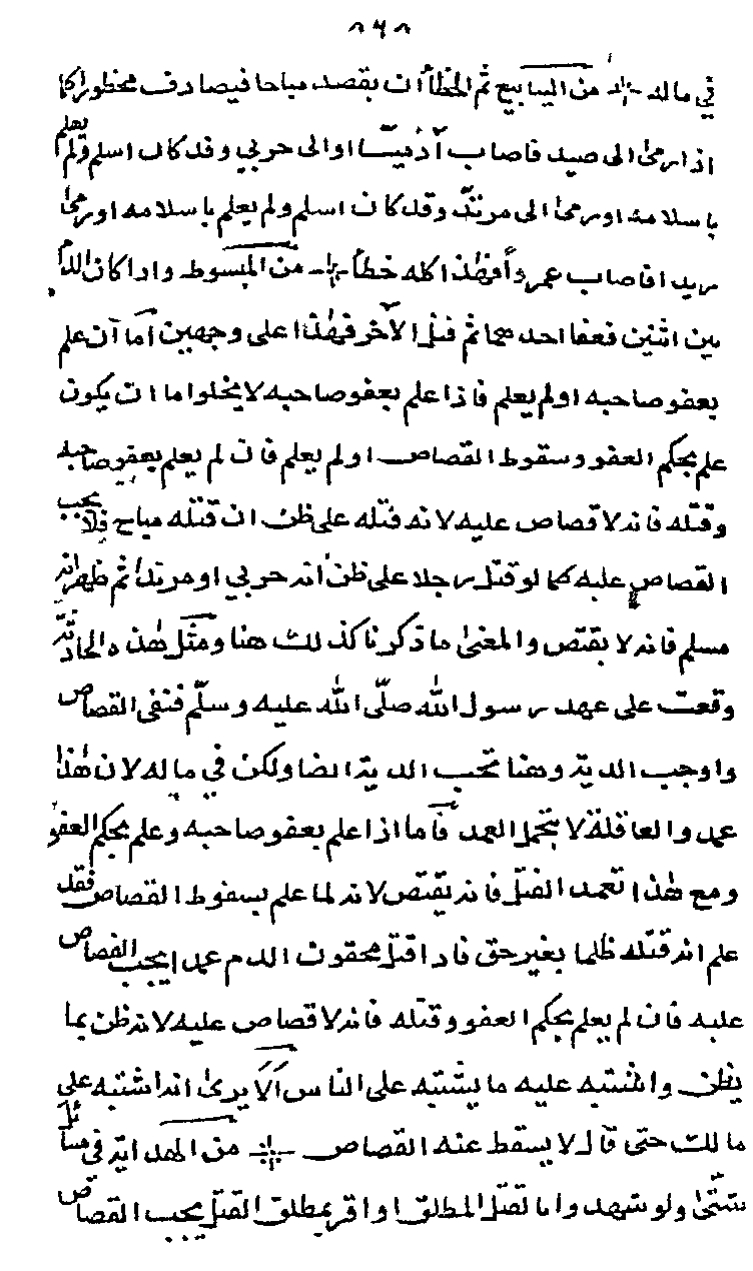 ٨٦٨
في ماله من الينابيع ثم الخطأ ان يقصد مباحا فيصادف محظورا كما
اذا رمى الى صيد فاصاب آدميّا او الى حربي وقد كان اسلم ولم يعلم
باسلامه او رمى الى مرتدّ وقد كان اسلم ولم يعلم باسلامه او رمى
زيدا فاصاب عمروا فهٰذا كله خطأ من المبسوط واذا كان الدم
بين اثنين فعفا احدهما ثم قتل الآخر فهٰذا على وجهين امّا ان علم
بعفو صاحبه او لم يعلم فاذا علم بعفو صاحبه لا يخلوا ما ان يكون
علم بحكم العفو وسقوط القصاص او لم يعلم فان لم يعلم بعفو صاحبه
وقتله فانه لا قصاص عليه لانه قتله على ظن ان قتله مباح فلا يجب
القصاص عليه كما لو قتل رجلا على ظن انه حربي او مرتد ثم ظهر انه
مسلم فانه لا يقتص والمعنى ما ذكرنا كذلك هنا ومثل هٰذه الحادثة
وقعت على عهد رسول الله صلّى الله عليه وسلّم فنفى القصاص
واوجب الدية وهنا تجب الدية ايضا ولكن في ماله لان هٰذا
عمد والعاقلة لا تتحمل العمد فأما اذا علم بعفو صاحبه وعلم بحكم العفو
ومع هٰذا تعمد القتل فانه يقتص لانه لما علم بسقوط القصاص فقد
علم انه قتله ظلما بغير حق فاذا قتل محقون الدم عمدا يجب القصاص
عليه فان لم يعلم بحكم العفو وقتله فانه لا قصاص عليه لانه ظن بما
يظن واشتبه عليه ما يشتبه على الناس ألا يرى انه اشتبه على
مالك حتى قال لا يسقط عنه القصاص من الهداية في مسائل
شتّى ولو شهدوا بالقتل المطلق او اقر بمطلق القتل يجب القصاص